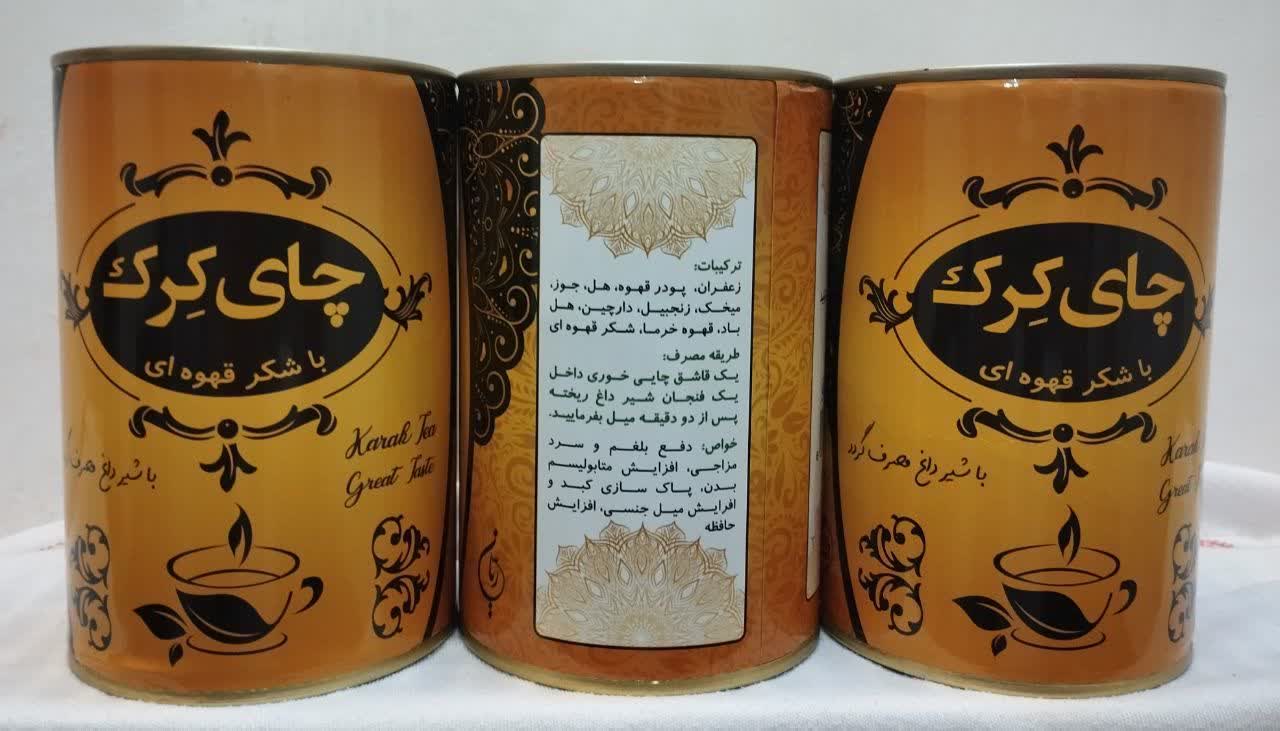 چای کِرک
با شکر قهوه ای
Karak Tea
Great Taste
با شیر داغ مصرف
ترکیبات:
زعفران، پودر قهوه، هل، جوز،
میخک، زنجبیل، دارچین، هل
باد، قهوه خرما، شکر قهوه ای
طریقه مصرف:
یک قاشق چایی خوری داخل
یک فنجان شیر داغ ریخته
پس از دو دقیقه میل بفرمایید.
خواص: دفع بلغم و سرد
مزاجی، افزایش متابولیسم
بدن، پاک سازی کبد و
افرایش میل جنسی، افزایش
حافظه
چای کِرک
با شکر قهوه ای
با شیر داغ مصرف گردد
Karak
Great